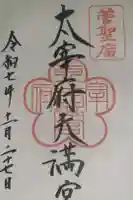 菅聖庿
太宰府天満宮
令和七年十一月二十七日